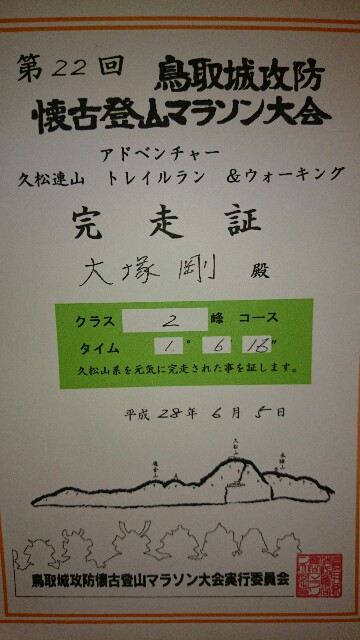 第22回 鳥取城攻防
懐古登山マラソン大会
アドベンチャー
久松連山 トレイルラン &ウォーキング
完走証
大塚剛 殿
クラス 2 峰 コース
タイム 1° 6′ 18″
久松山系を元気に完走された事を証します。
平成28年6月5日
久松山
本陣山
鳥取城攻防懐古登山マラソン大会実行委員会